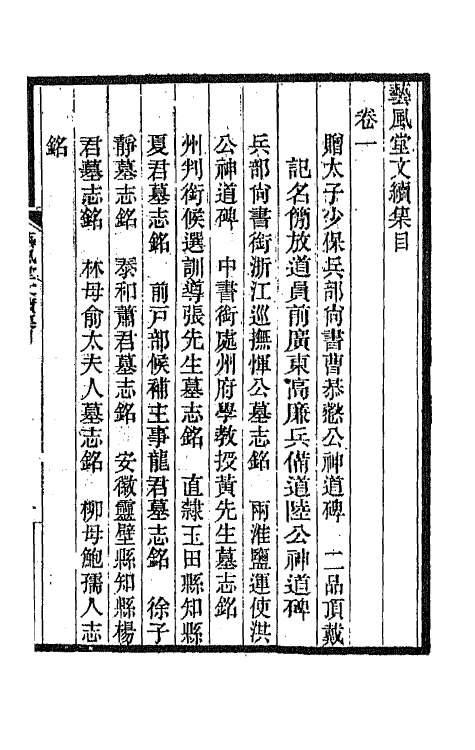 藝風堂文續集目
卷一
贈太子少保兵部尚書曹恭慤公神道碑　二品頂戴
記名簡放道員前廣東高廉兵備道陸公神道碑
兵部尚書銜浙江巡撫惲公墓志銘　兩淮鹽運使淇
公神道碑　中書銜處州府學教授黃先生墓志銘
州判銜候選訓導張先生墓志銘　直隸玉田縣知縣
夏君墓志銘　前戸部候補主事龍君墓志銘　徐子
靜墓志銘　泰和蕭君墓志銘　安徽靈壁縣知縣楊
君墓志銘　林母俞太夫人墓志銘　柳母鮑孺人志
銘